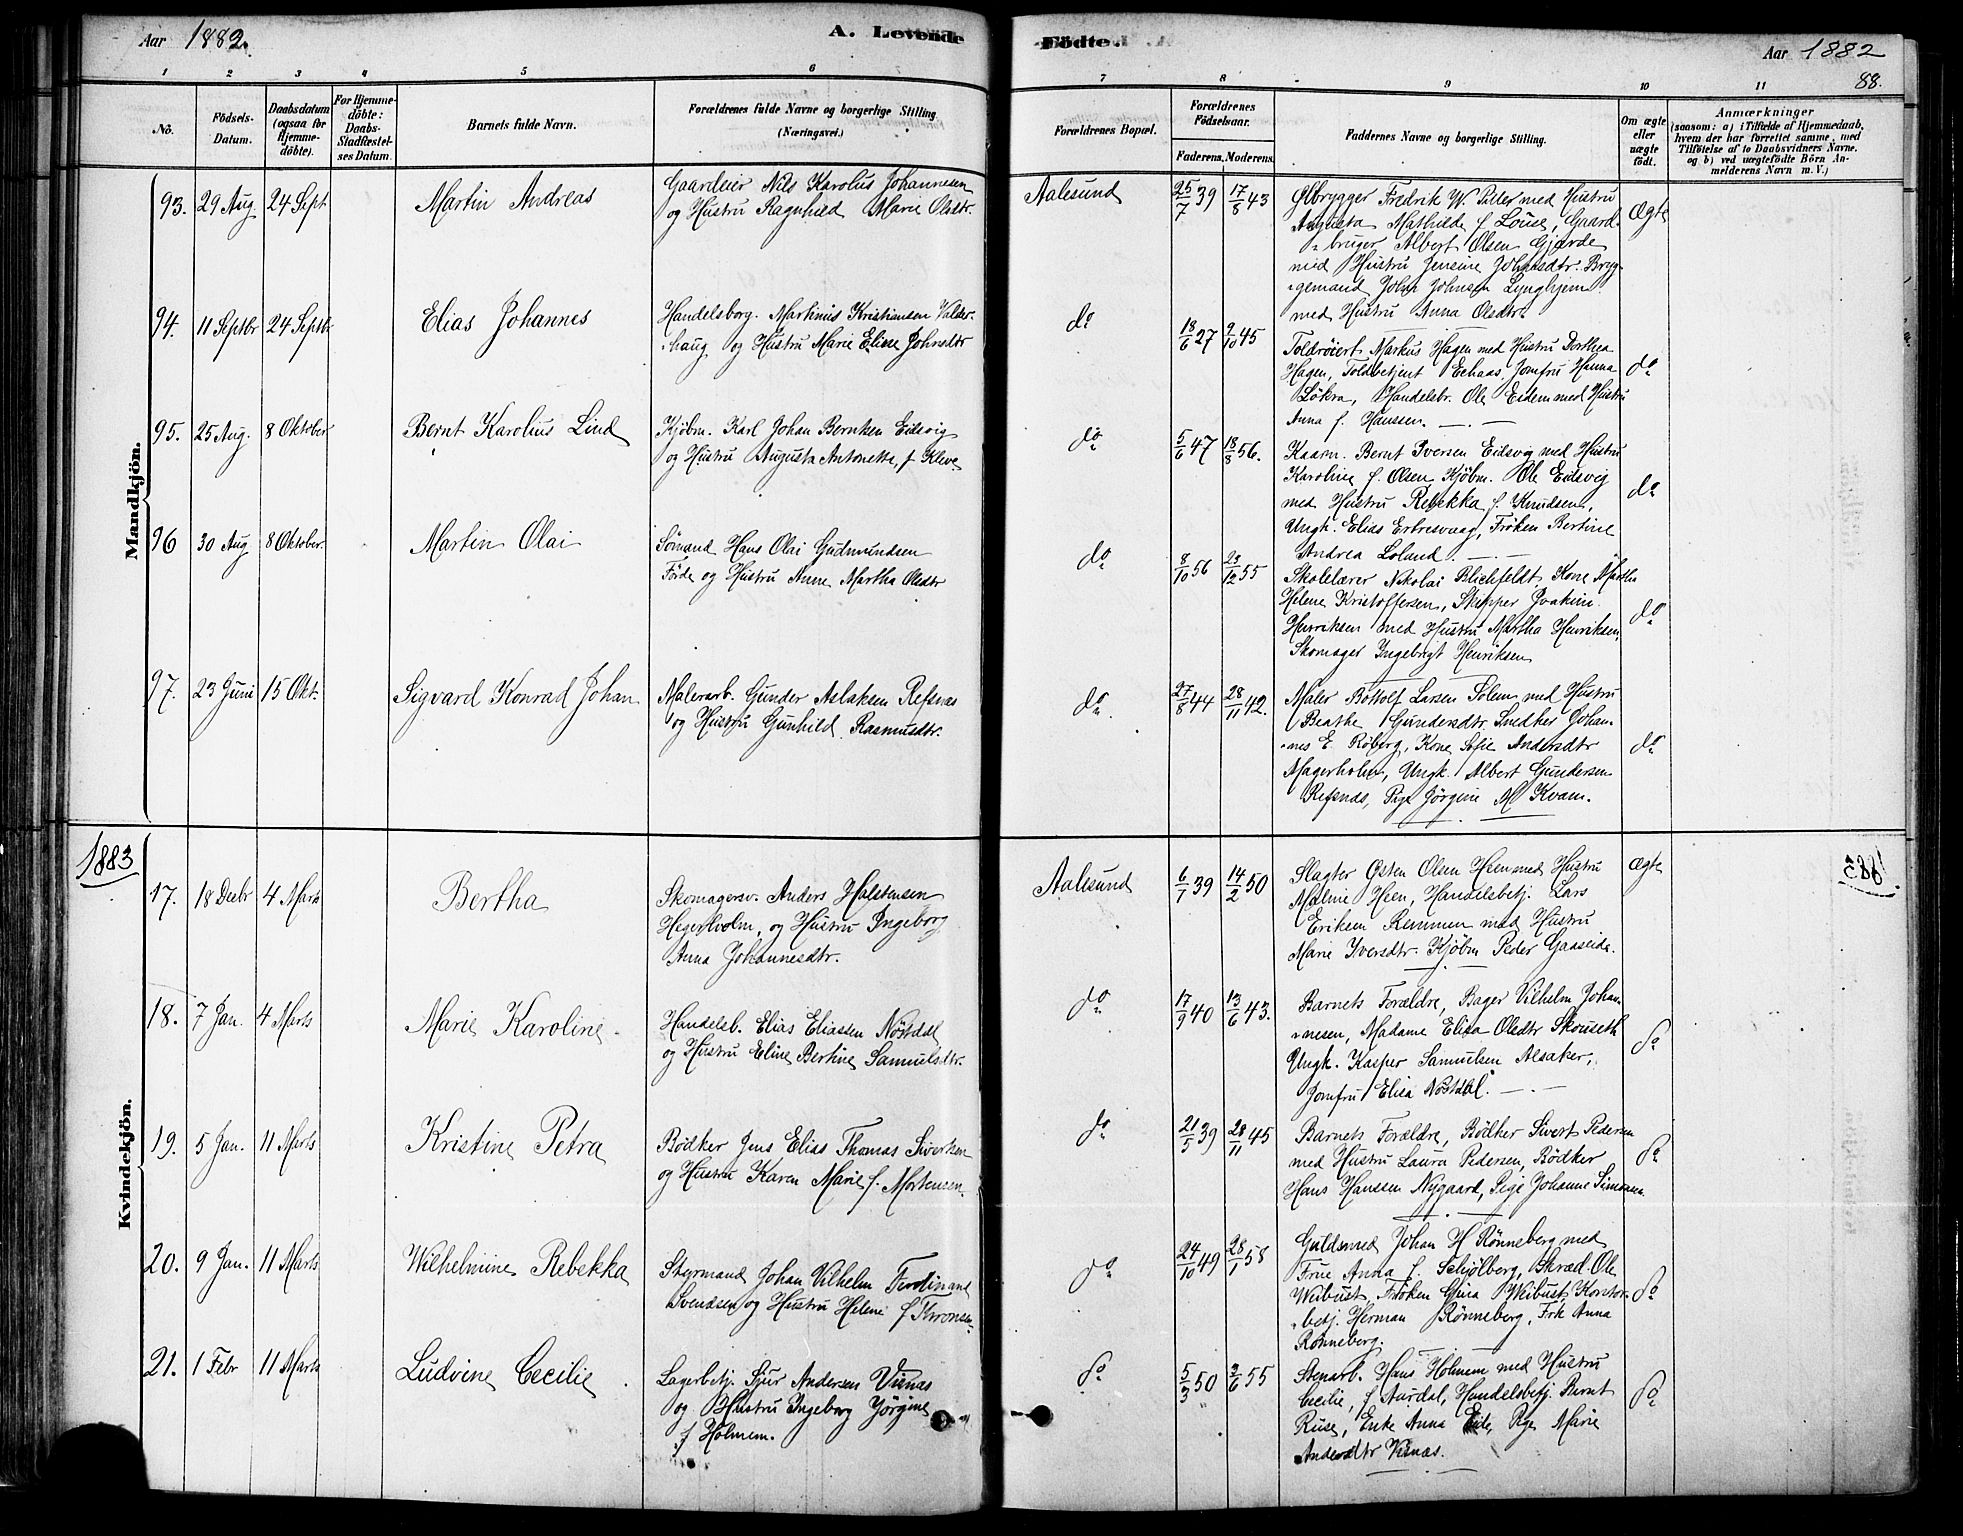 Aar 1882.
A. Levende
Födte.
Aar 1882
88.
1 2 3 4 5 6 7 8 9 10 11
No.
Födsels-
Datum.
Daabsdatum
(ogsaa for
Hjemme-
döbte).
For Hjemme-
döbte:
Daabs-
Stadfæstel-
ses Datum.
Barnets fulde Navn.
Forældrenes fulde Navne og borgerlige Stilling
(Næringsvei.)
Forældrenes Bopæl.
Forældrenes
Födselsaar.
Faderens. Moderens.
Faddernes Navne og borgerlige Stilling.
Om ægte
eller
uægte
födt.
Anmærkninger
(saasom: a) i Tilfælde af Hjemmedaab,
hvem der har forrettet samme, med
Tilföielse af to Daabsvidners Navne.
og b) ved uægtefödte Börn An-
melderens Navn m. V.)
Mandkjön.
93. 29 Aug. 24 Sept
Martin Andreas
Gaardeier Nils Karolus Johannesen
og Hustru Ragnhild Marie Olsdtr.
Aalesund
25/7 39 17/8 43
Ølbrygger Fredrik W. Piller med Hustru
Augusta Mathilde f Louse, Gaard-
bruger Albert Olsen Gjærde
med Hustru Jensine Johnsdtr. Bryg-
gemand John Johnsen Lynghjem
med Hustru Anna Olsdtr.
Ægte
94. 11 Septbr 24 Septbr
Elias Johannes
Handelsborg. Martinus Kristiansen Valder-
haug og Hustru Marie Eline Johnsdtr
do
18/6 27 9/10 45
Toldröiert Markus Hagen med Hustru Dorthea
Hagen, Toldbetjent Echaas, Jomfru Hanna
Lökra, Handelsbr. Ole Eidem med Hustru
Anna f. Hanssen.
do
95. 25 Aug. 8 Oktober
Bernt Karolius Lind
Kjöbm. Karl Johan Berntsen Eidsvig
og Hustru Augusta Antonette, f Kleve
do
5/6 47 18/8 56.
Kaarm. Bernt Iversen Eidsvig med Hustru
Karoline f. Olsen, Kjöbm. Ole Eidsvig
med Hustru Rebekka f. Knudsen,
Ungk. Elias Erbresvaag, Fröken Bertine
Andrea Loland.
do
96 30 Aug 8 Oktober.
Martin Olai
Sömand Hans Olai Gudmundsen
Förde og Hustru Anne Martha Olsdtr
do
8/10 56 23/12 55
Skolelærer Nikolai Blichfeldt, Kone Martha
Helene Kristoffersen, Skipper Joakim
Henriksen med Hustru Martha Henriksen,
Skomager Ingebrigt Henriksen
do
97. 23 Juni 15 Okt.
Sigvard Konrad Johan
Malerarb. Gunder Aslaksen Refsnæs
og Hustru Gunhild Rasmusdtr.
do.
27/8 44 28/11 42.
Maler Bottolf Larsen Solem med Hustru
Beathe Gundersdtr Snedker Johan-
nes E. Röberg, Kone Sofie Andersdtr
Magerholm, Ungk. Albert Gundersen
Refsnæs, Pige Jörgine M Kvam.
do
1883
Kvindekjön.
17. 18 Decbr 4 Marts
Bertha
Skomagersv. Anders Halstensen
Hegerholm, og Hustru Ingeborg
Anna Johannesdtr.
Aalesund
6/1 39 14/2 50
Slagter Østen Olsen Hien med Hustru
Maline Hien, Handelsbetj. Lars
Eriksen Remmen med Hustru
Marie Iversdtr. Kjöbm Peder Gaaseide.
Ægte
18. 7 Jan. 4 Marts
Marie Karoline
Handelsb. Elias Eliassen Nöstdal
og Hustru Eline Bertine Samuelsdtr.
do
17/9 40 13/6 43.
Barnets Forældre, Bager Vilhelm Johan-
nesen, Madame Elisa Olsdtr Skouseth
Ungk. Kasper Samuelsen Alsaker,
Jomfru Elisa Nöstdal.
do
19. 5 Jan. 11 Marts
Kristine Petra
Bödker Jens Elias Thomas Sivertsen
og Hustru Karen Marie f. Mortensen
do
21/5 39 28/11 45
Barnets Forældre, Bödker Sivert Pedersen
med Hustru Laura Pedersen, Bödker
Hans Hanssen Nygaard, Pige Johanne Simonsen
do
20. 9 Jan. 11 Marts
Wilhelmine Rebekka
Styrmand Johan Vilhelm Ferdinand
Svendsen og Hustru Helene f
do
24/10 49 28/1 58
Guldsmed Johan H Rönneberg med
Frue Anna f Schjölberg, Skræd. Ole
Weibust, Fröken Gina Weibust, Kontor-
betj. Herman Rönneberg, Frk Anna
Rönneberg.
do
21. 1 Febr 11 Marts
Ludvine Cecilie
Lagerbetj. Sjur Andersen Visnæs
og Hustru Ingeborg Jörgine
f Holmem.
do
5/3 50 2/6 55
Stenarb. Hans Holmem med Hustru
Cecilie, f Aardal, Handelsbetj. Bernt
Ruse, Enke Anna Eide, Pige Marie
Andersdtr Visnæs.
do